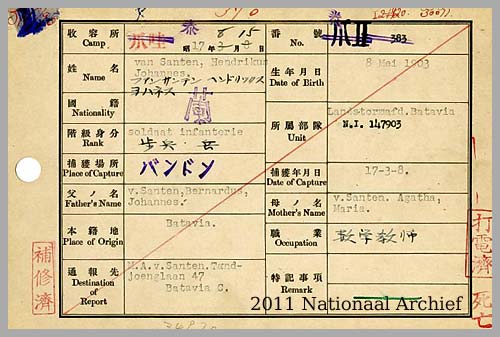 收容所 Camp
爪哇 泰
8 15
昭 17 3 8
番號 No.
爪 II 383
姓名 Name
van Santen, Hendrikus
Johannes.
ファン サンテン ヘンドリックス
ヨハネス
生年月日 Date of Birth
8 Mei 1903
國籍 Nationality
蘭
所屬部隊 Unit
Landstormafd. Batavia
N.I. 147903
階級身分 Rank
soldaat infanterie
歩兵 兵
捕獲場所 Place of Capture
バンドン
捕獲年月日 Date of Capture
17-3-8.
父ノ名 Father's Name
v.Santen,Bernardus,
Johannes.
母ノ名 Mother's Name
v.Santen. Agatha,
Maria.
本籍地 Place of Origin
Batavia.
職業 Occupation
数学教師
通報先 Destination of Report
v.Santen.
joenglaan 47
Batavia C.
特記事項 Remark
補修濟
打電濟
死亡
2011 Nationaal Archief